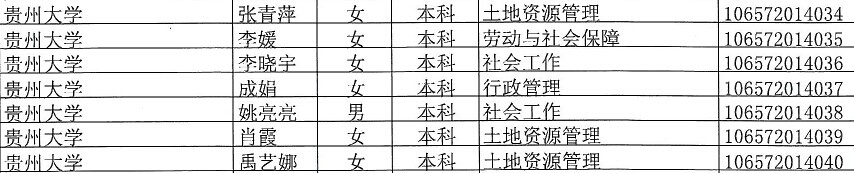 贵州大学 张青萍 女 本科 土地资源管理 106572014034
贵州大学 李媛 女 本科 劳动与社会保障 106572014035
贵州大学 李晓宇 女 本科 社会工作 106572014036
贵州大学 成娟 女 本科 行政管理 106572014037
贵州大学 姚亮亮 男 本科 社会工作 106572014038
贵州大学 肖霞 女 本科 土地资源管理 106572014039
贵州大学 禹艺娜 女 本科 土地资源管理 106572014040